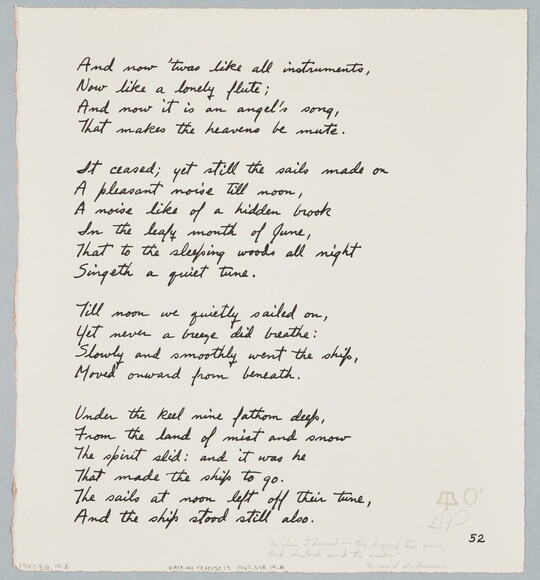 And now 'twas like all instruments,
Now like a lonely flute;
And now it is an angel's song,
That makes the heavens be mute.
It ceased; yet still the sails made on
A pleasant noise till noon,
A noise like of a hidden brook
In the leafy month of June,
That to the sleeping woods all night
Singeth a quiet tune.
Till noon we quietly sailed on,
Yet never a breeze did breathe:
Slowly and smoothly went the ship,
Moved onward from beneath.
Under the keel nine fathom deep,
From the land of mist and snow
The spirit slid: and it was he
That made the ship to go.
The sails at noon left off their tune,
And the ship stood still also.
52